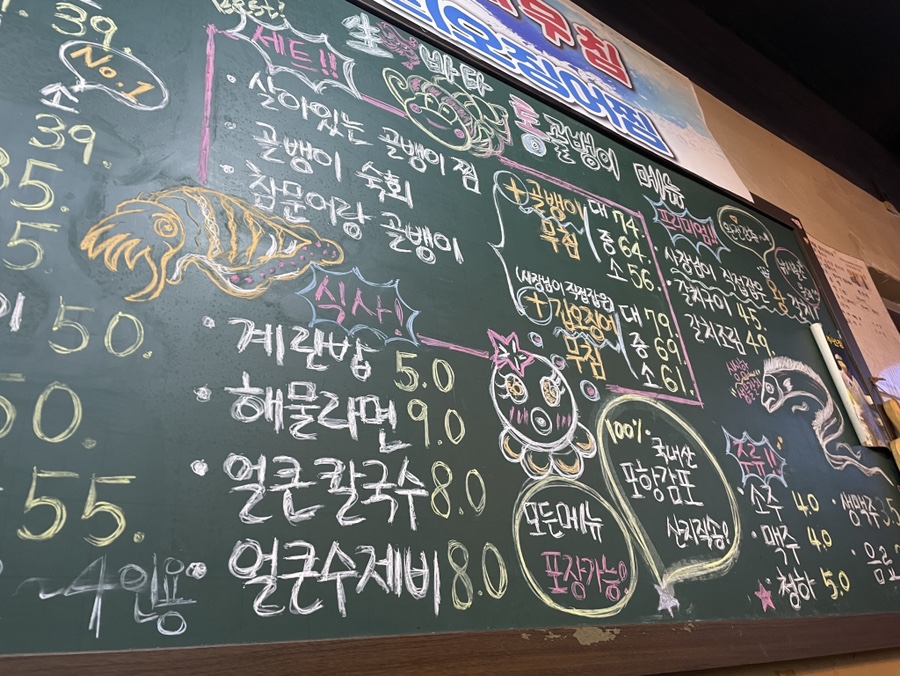 39.
No.1
소
39.
35.
5
50.
50.
55.
~4인용
Best!
세트!!
· 살아있는 골뱅이 찜
골뱅이 숙회
· 참문어랑 골뱅이
生 바다
통골뱅이 메뉴
+골뱅이 무침
대 74.
중 64.
소 56
(사장님이 직접잡은)
+갑오징어 무침
대 79.
중 69.
소 61.
식사!
· 계란밥 5.0
· 해물라면 9.0
· 얼큰 칼국수 8.0
· 얼큰수제비 8.0
모든메뉴
포장가능!
100%
국내산
포항감포
산지직송!
프리미엄!!
사장님이 직접잡은
갈치구이 45.
갈치조림 49.
주류!!
· 소주 4.0
· 맥주 4.0
청하 5.0
· 생맥주 3.5